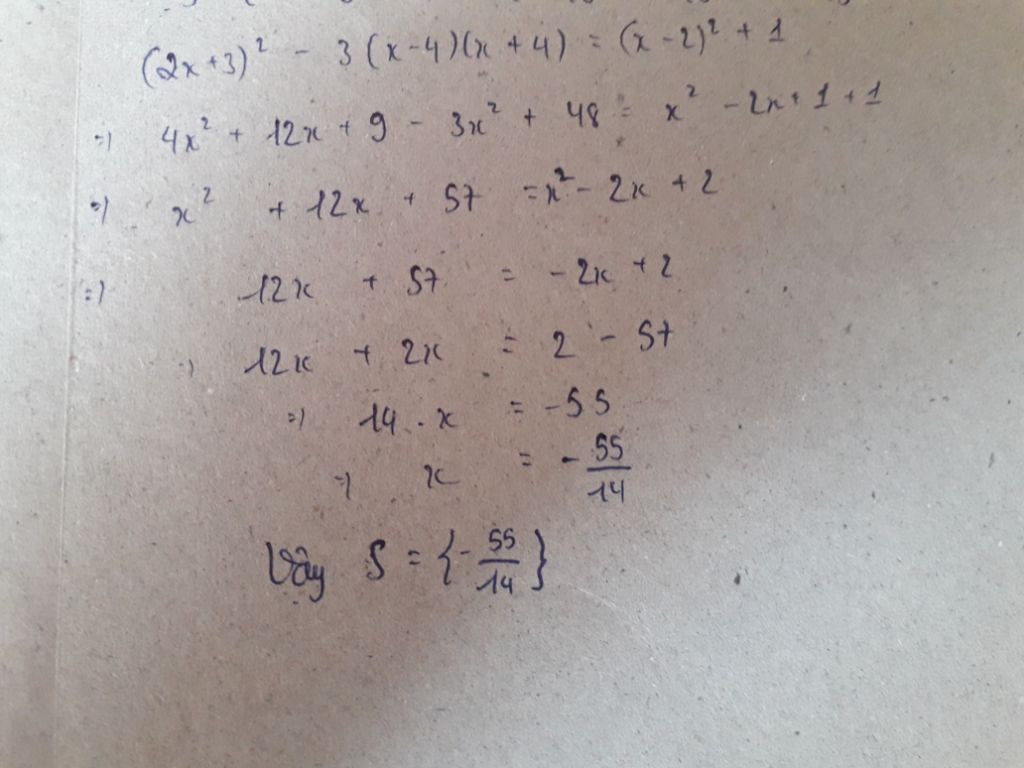 (2x+3)² - 3(x-4)(x+4) = (x-2)² + 1
=) 4x² + 12x + 9 - 3x² + 48 = x² - 2x + 1 + 1
=) x² + 12x + 57 = x² - 2x + 2
=) 12x + 57 = -2x + 2
12x + 2x = 2 - 57
=) 14 . x = -55
=) x = -55/14
Vậy S = {-55/14}